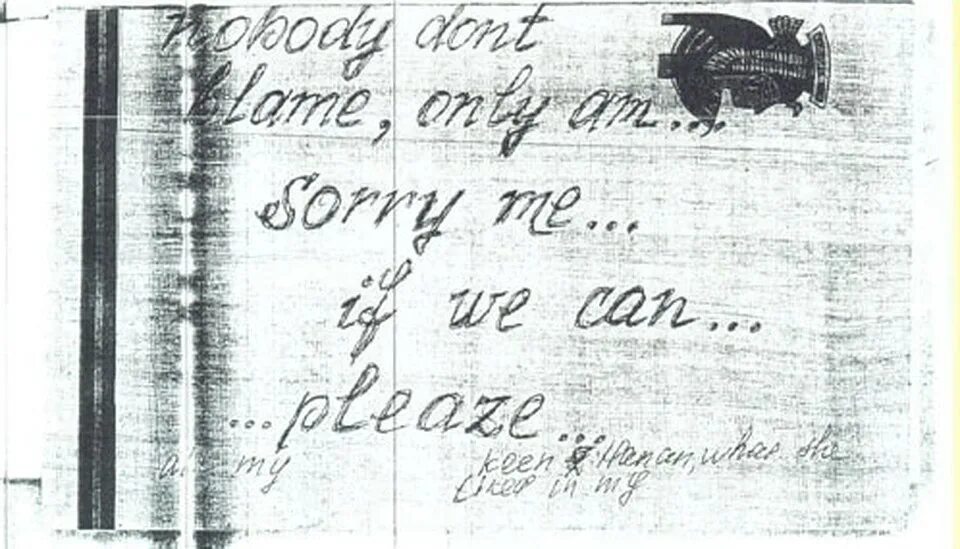 nobody dont
blame, only am...
Sorry me...
if we can...
...pleaze...
my
keen Hanan, whas she
Liked in my